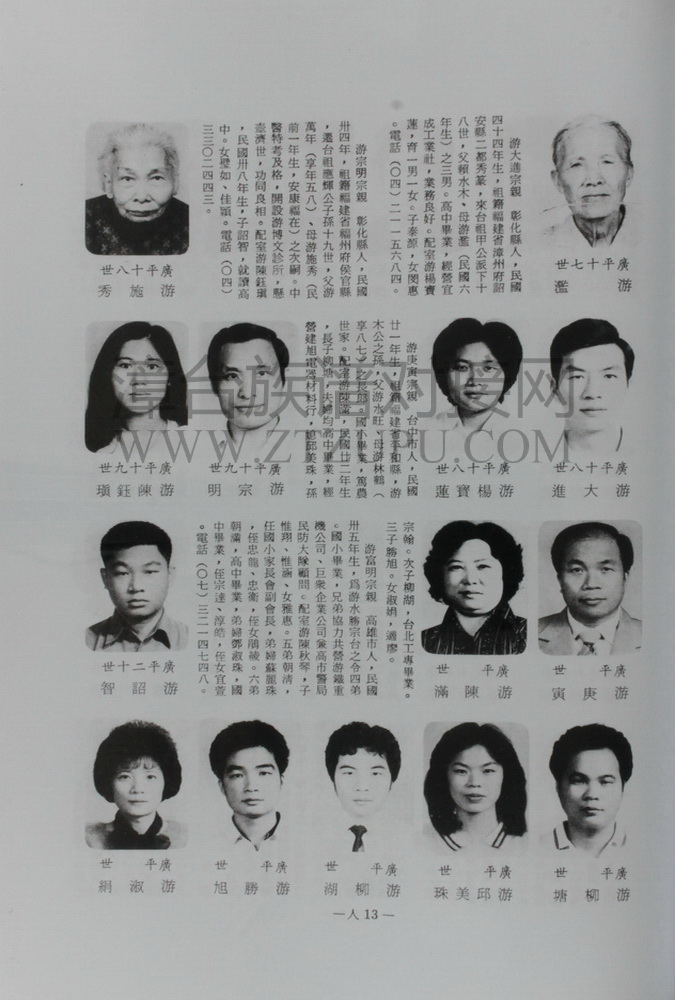 游大進宗親　彰化縣人，民國
四十四年生，祖籍福建省漳州府詔
安縣二都秀篆，來台祖甲公派下十
八世，父賴水木、母游灩（民國六
年生）之三男。高中畢業，經營宜
成工業社，業務良好。配室游楊寶
蓮，育一男一女。子泰源，女閔惠
。電話（〇四）二一一五六八四。
廣平十七世
游灩
游宗明宗親　彰化縣人，民國
卅四年，祖籍福建省福州府侯官縣
，遷台祖應輝公子孫十九世，父游
萬年（享年五八）、母游施秀（民
前一年生，安康福在）之次嗣。中
醫特考及格，開設游博文診所，懸
壺濟世，功同良相。配室游陳鈺瑱
，民國卅八年生，子詔智，就讀高
中。女璧如、佳穎。電話（〇四）
三三〇二四四三。
廣平十八世
游施秀
廣平十八世
游大進
廣平十八世
游楊寶蓮
游庚寅宗親　台中市人，民國
廿一年生，祖籍福建省平和縣，游
木公之孫，父游水旺、母游林鶴（
享八七）之長郎。國小畢業，篤農
世家。配室游陳滿，民國廿二年生
，長子柳塘，夫婦均高中畢業，經
營建旭電器材料行，媳邱美珠，孫
廣平十九世
游宗明
廣平十九世
游陳鈺瑱
廣平　世
游庚寅
廣平　世
游陳滿
宗翰。次子柳湖，台北工專畢業。
三子勝旭。女淑娟，適廖。
游富明宗親　高雄市人，民國
卅五年生，爲游水勝宗台之令四弟
。國小畢業，兄弟協力共營游鐵重
機公司、巨衆企業公司兼高市警局
民防大隊顧問。配室游陳秋琴，子
惟翔、惟涵、女雅惠。五弟朝清，
任國小家長會副會長，弟婦蘇麗珠
，侄忠龍、忠衛，侄女鵑綾。六弟
朝滿，高中畢業，弟婦鄭淑珠，國
中畢業，侄宗達、淳皓，侄女宜萱
。電話（〇七）三二一四七四八。
廣平二十世
游詔智
廣平　世
游柳塘
廣平　世
游邱美珠
廣平　世
游柳湖
廣平　世
游勝旭
廣平　世
游淑絹
—人 13—
漳台族谱对接网